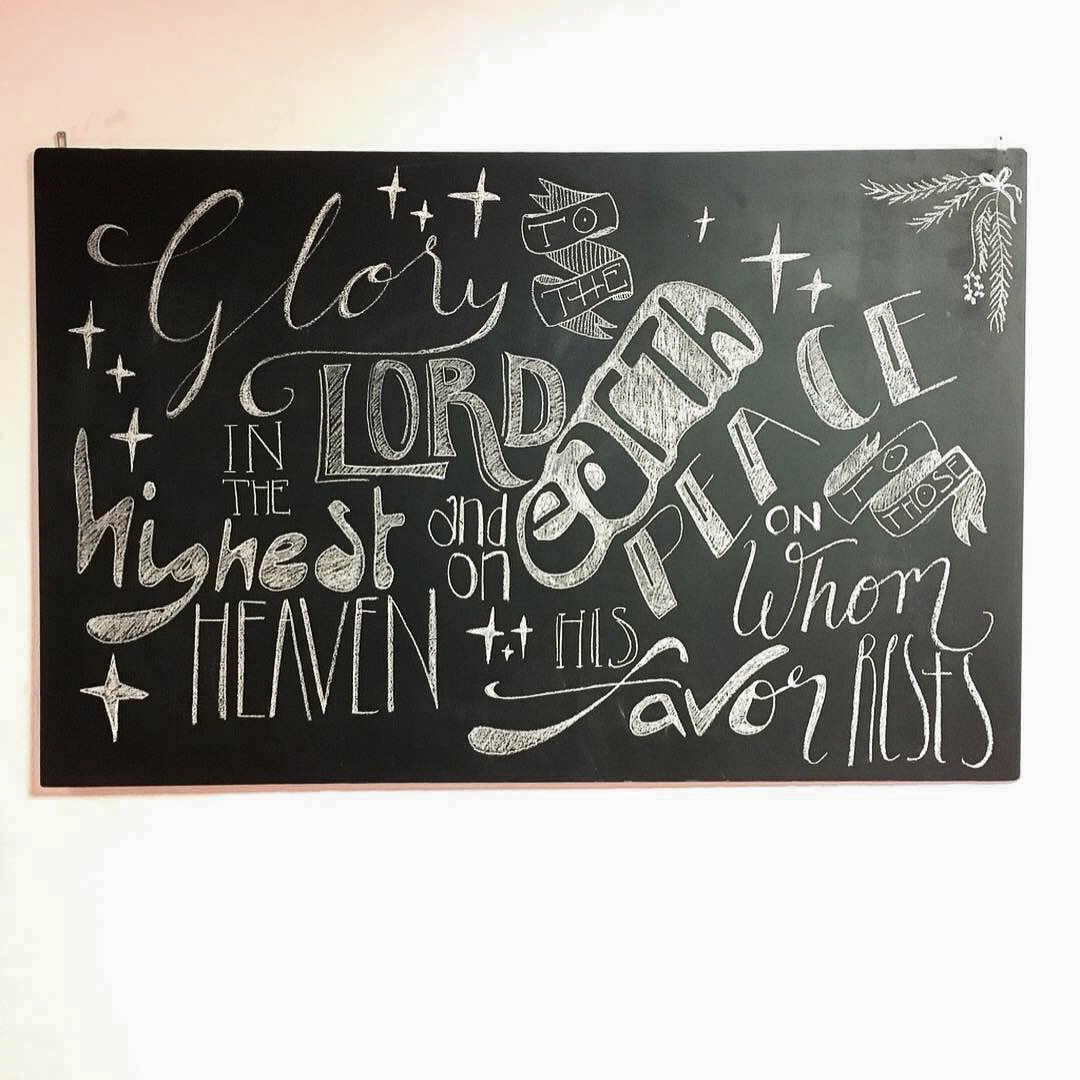 Glory TO THE
LORD
IN THE
highest
HEAVEN
and on
earth
PEACE
TO THOSE
ON Whom
HIS favor RESTS